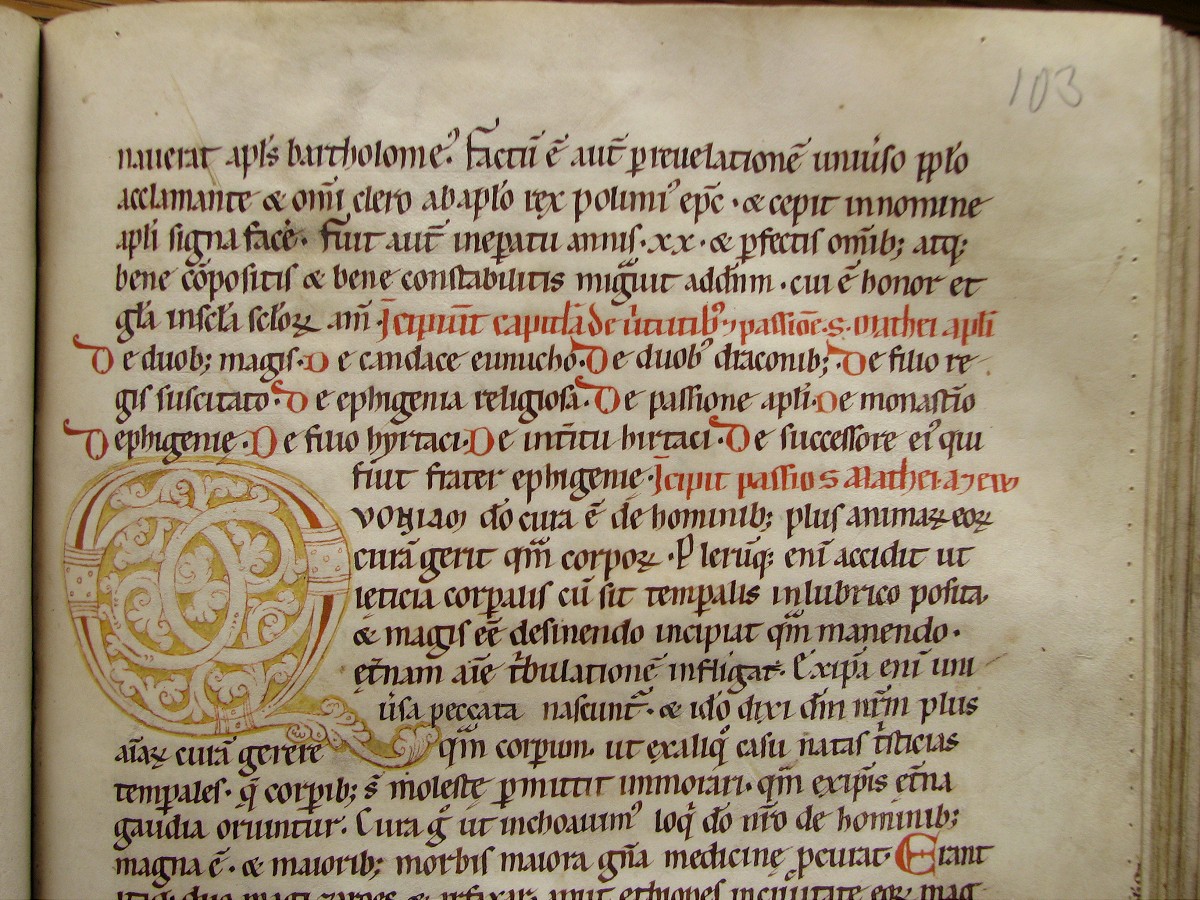 103
nauerat apl's bartholome᾿. Factū ē aut̄ p̱ reuelationē uniu'so pp̱lo
acclamante & om̄i clero ab aplo rex polimi᾿ ep̄c · & cepit in nomine
apli signa facē · Fuit aut̄ in ep̱atu annis · xx · & p̱fectis omib; atq;
bene cōpositis & bene constabilitis migͣuit ad dn̄m · cui ē honor et
gl̄a in scl̄a scl̄oꝝ am̄ Īcipiunt capitl̄a de u'tutib᾿ ⁊ passiōe · S · Mathei apl̄i
De duob; magis · De candace eunucho · De duob᾿ draconib; · De filio re
gis suscitato · De ephigenia religiosa · De passione apl̄i · De monast̄io
Dephigenię · De filio hyrtaci · De int̄itu hirtaci · De successore ei᾿ qui
fuit frater ephigenie · Īcipit passio S Mathei a⁊ ew
QVONIAM do cura ē de hominib; plus animaꝝ eoꝝ
curā gerit qm̄ corpoꝝ · Pleruq; eni accidit ut
lęticia corp̱alis cū sit temp̱alis in lubrico posita
& magis eē desinendo incipiat qm̄ manendo ·
ęt̄nam aīe t'bulationē infligat · Ex ip̱a eni uni
u'sa peccata nascunt̄ · & ido dixi dm̄ nr̄m plus
aīaꝝ curā gerere qm̄ corpium · ut ex aliq̊ casu natas t'sticias
temp̱ales · q̄ corp̱ib; s̄ molestę p̱mittit immorari · qm̄ ex ip̄is et̄na
gaudia oriuntur. Cura g̊ ut inchoauim᾿ loqͥ do nr̄o de hominib;
magna ē · & maiorib; morbis maiora gn̄a medicinę p̱curat · Erant
itaq; duo magi zaroes & arfaxar apud ethiopes in ciuitate eoꝝ mag